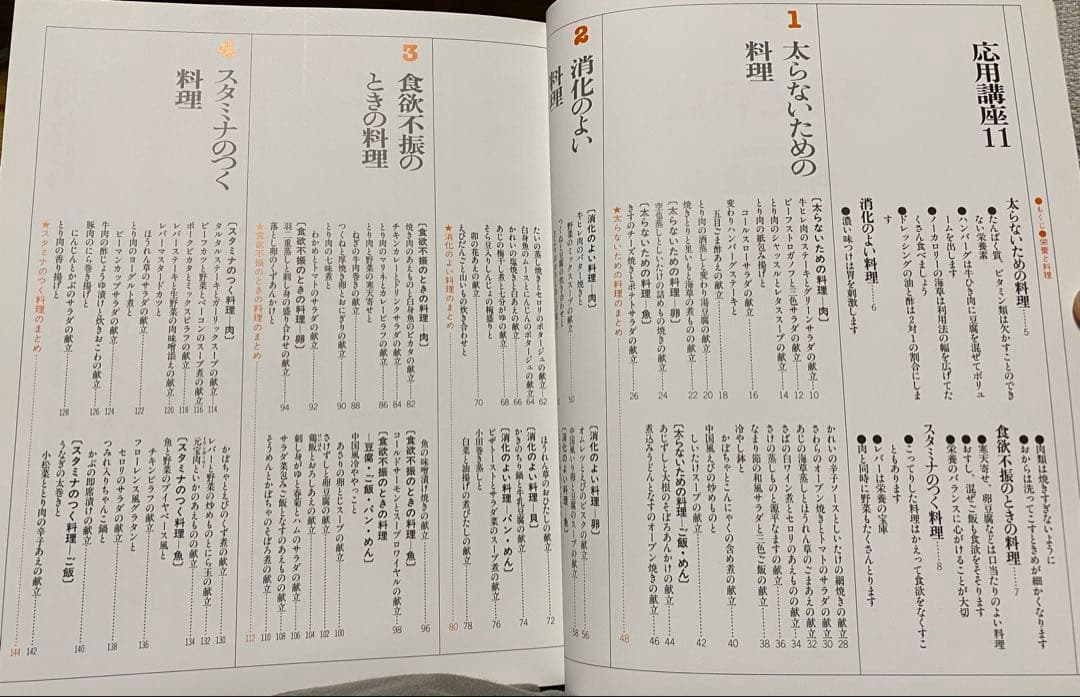 応用講座11
●もくじ●栄養と料理
太らないための料理……5
●たんぱく質、ビタミン類は欠かすことのできない栄養素
●ハンバーグは牛ひき肉に豆腐を混ぜてボリュームを出します
●ノーカロリーの海草は利用法の幅を広げてたくさん食べましょう
●ドレッシングの油と酢は2対1の割合にします
消化のよい料理……6
●濃い味つけは胃を刺激します
●肉類は焼きすぎないように
●おからは洗ってこすときめが細かくなります
食欲不振のときの料理……7
●寒天寄せ、卵豆腐などは口当たりのよい料理
●おすし、混ぜご飯も食欲をそそります
●栄養のバランスに心がけることが大切
スタミナのつく料理……8
●こってりした料理はかえって食欲をなくすこともあります
●レバーは栄養の宝庫
●肉と同時に野菜もたくさんとります
1
太らないための
料理
[太らないための料理—肉]
牛ヒレ肉のステーキとグリーンサラダの献立…10
ビーフストロガノフと三色サラダの献立…12
とり肉のシャスルとレタススープの献立…14
とり肉の紙包み揚げと
コールスローサラダの献立……16
変わりハンバーグステーキと
五目ごま酢あえの献立……18
とり肉の酒蒸しと変わり湯豆腐の献立……20
焼きとりと里いもと海草の煮ものの献立…22
[太らないための料理—卵]
空也蒸しとしいたけの詰めもの焼きの献立…24
[太らないための料理—魚]
きすのチーズ焼きとポテトサラダの献立…26
かれいの辛子ソースとしいたけの網焼きの献立…28
さわらのオーブン焼きとトマトのサラダの献立…30
あじの海草蒸しとほうれん草のごまあえの献立…32
さばの白ワイン煮とセロリのあえものの献立…34
さけの蒸しものと源平なますの献立……36
なまり節の和風サラダと三色ご飯の献立……38
かつおのたたきとこんにゃくの含め煮の献立…40
冷やし鉢と
かぼちゃのいとこ煮の献立……40
中国風えび炒めものと
しいたけスープの献立……42
[太らないための料理—ご飯・めん]
あじずしと大根のそぼろあんかけの献立……44
煮込みうどんとなすのオーブン焼きの献立……46
★太らないための料理のまとめ……48
2
消化のよい
料理
[消化のよい料理—肉]
牛ヒレ肉のバター焼きと
野菜のミックススープの献立……50
[消化のよい料理—卵]
オムレツとえびのビスクの献立……56
[消化のよい料理—魚]
たいの蒸し焼きとセロリのポタージュの献立…62
白身魚のムースとにんじんのポタージュの献立…64
かれいの塩焼きと白あえの献立……66
あじの梅干し煮と七分がゆの献立……68
そら豆入りしんじょの椀盛りと
卵の花あえの献立……70
えびだんごと山いもの炊き合わせと
ほうれん草のおひたしの献立……72
[消化のよい料理—貝]
かきのちり鍋と牛乳豆腐の献立……74
[消化のよい料理—パン・めん]
ピザトーストとサラダ菜のスープ煮の献立…76
小田巻き蒸しと
白菜と油揚げの煮びたしの献立……78
★消化のよい料理のまとめ……80
3
食欲不振の
ときの料理
[食欲不振のときの料理—肉]
焼き肉のあえものと白身魚のピカタの献立…82
チキンカレーとドリンクサラダの献立……84
とり肉のマリネとカレーピラフの献立……86
とり肉と野菜の寒天寄せと
ねぎの牛肉巻きの献立……88
つくねと厚焼き卵とおにぎりの献立……90
とり肉の治部煮と
わかめとトマトのサラダの献立……92
[食欲不振のときの料理—卵]
羽二重蒸しと刺し身の盛り合わせの献立……94
落とし卵のくずあんかけと
魚の味噌漬け焼きの献立……96
[食欲不振のときの料理—魚]
コールドサーモンとスープロワイヤルの献立…98
[食欲不振のときの料理
—豆腐・ご飯・パン・めん]
中国風冷ややっこと
あさりの卵とじスープの献立……100
さけずしと卵豆腐の献立……102
鶏飯とおろしあえの献立……104
刺し身がゆと春菊とハムのサラダの献立……106
サラダ菜包みご飯となすのあえものの献立…108
そうめんとかぼちゃのそぼろ煮の献立……110
★食欲不振のときの料理のまとめ……112
4
スタミナのつく
料理
[スタミナのつく料理—肉]
タルタルステーキとガーリックスープの献立…114
ビーフカツと野菜とベーコンのスープ煮の献立…116
ポークピカタとミックスピラフの献立……118
レバーステーキと生野菜の肉味噌添えの献立…120
レバーマスタードカツと
ほうれん草のサラダの献立……122
とり肉のヨーグルト煮と
ピーマンカップサラダの献立……124
牛肉の酢じょうゆ漬けと炊きおこわの献立…126
豚肉のにら巻き揚げと
にんじんとかぶのサラダの献立……128
とり肉の香り揚げと
かぼちゃとえびのくず煮の献立……130
レバーと野菜の炒めものととら玉の献立……132
元宝肉といかのあえものの献立……134
[スタミナのつく料理—魚]
魚と野菜のブイヤベース風と
チキンピラフの献立……136
フローレンス風グラタンと
セロリのサラダの献立……138
つみれ入りちゃんこ鍋と
かぶの即席漬けの献立……140
[スタミナのつく料理—ご飯]
うなぎの太巻きと
小松菜ととり肉の辛子あえの献立……142
★スタミナのつく料理のまとめ……144